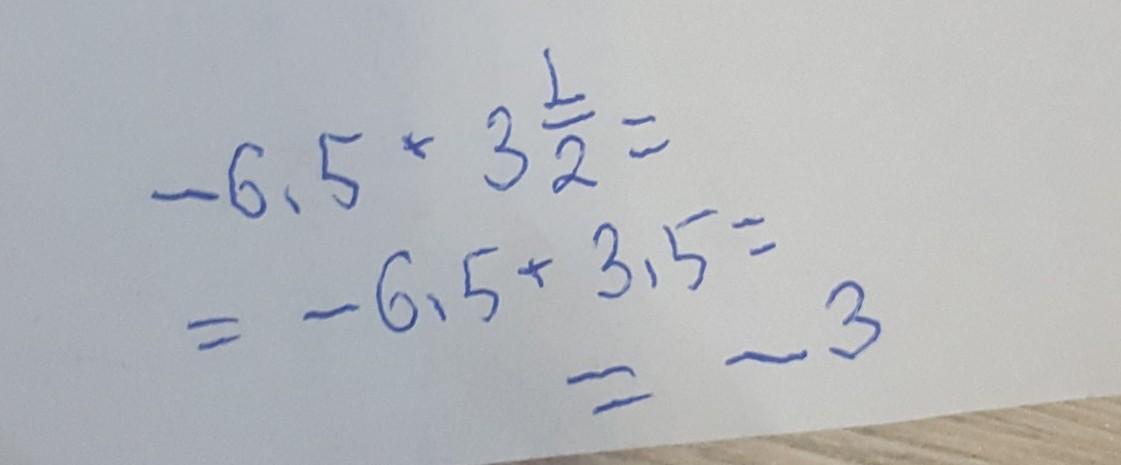 -6,5 + 3 1/2 =
= -6,5 + 3,5 =
= -3